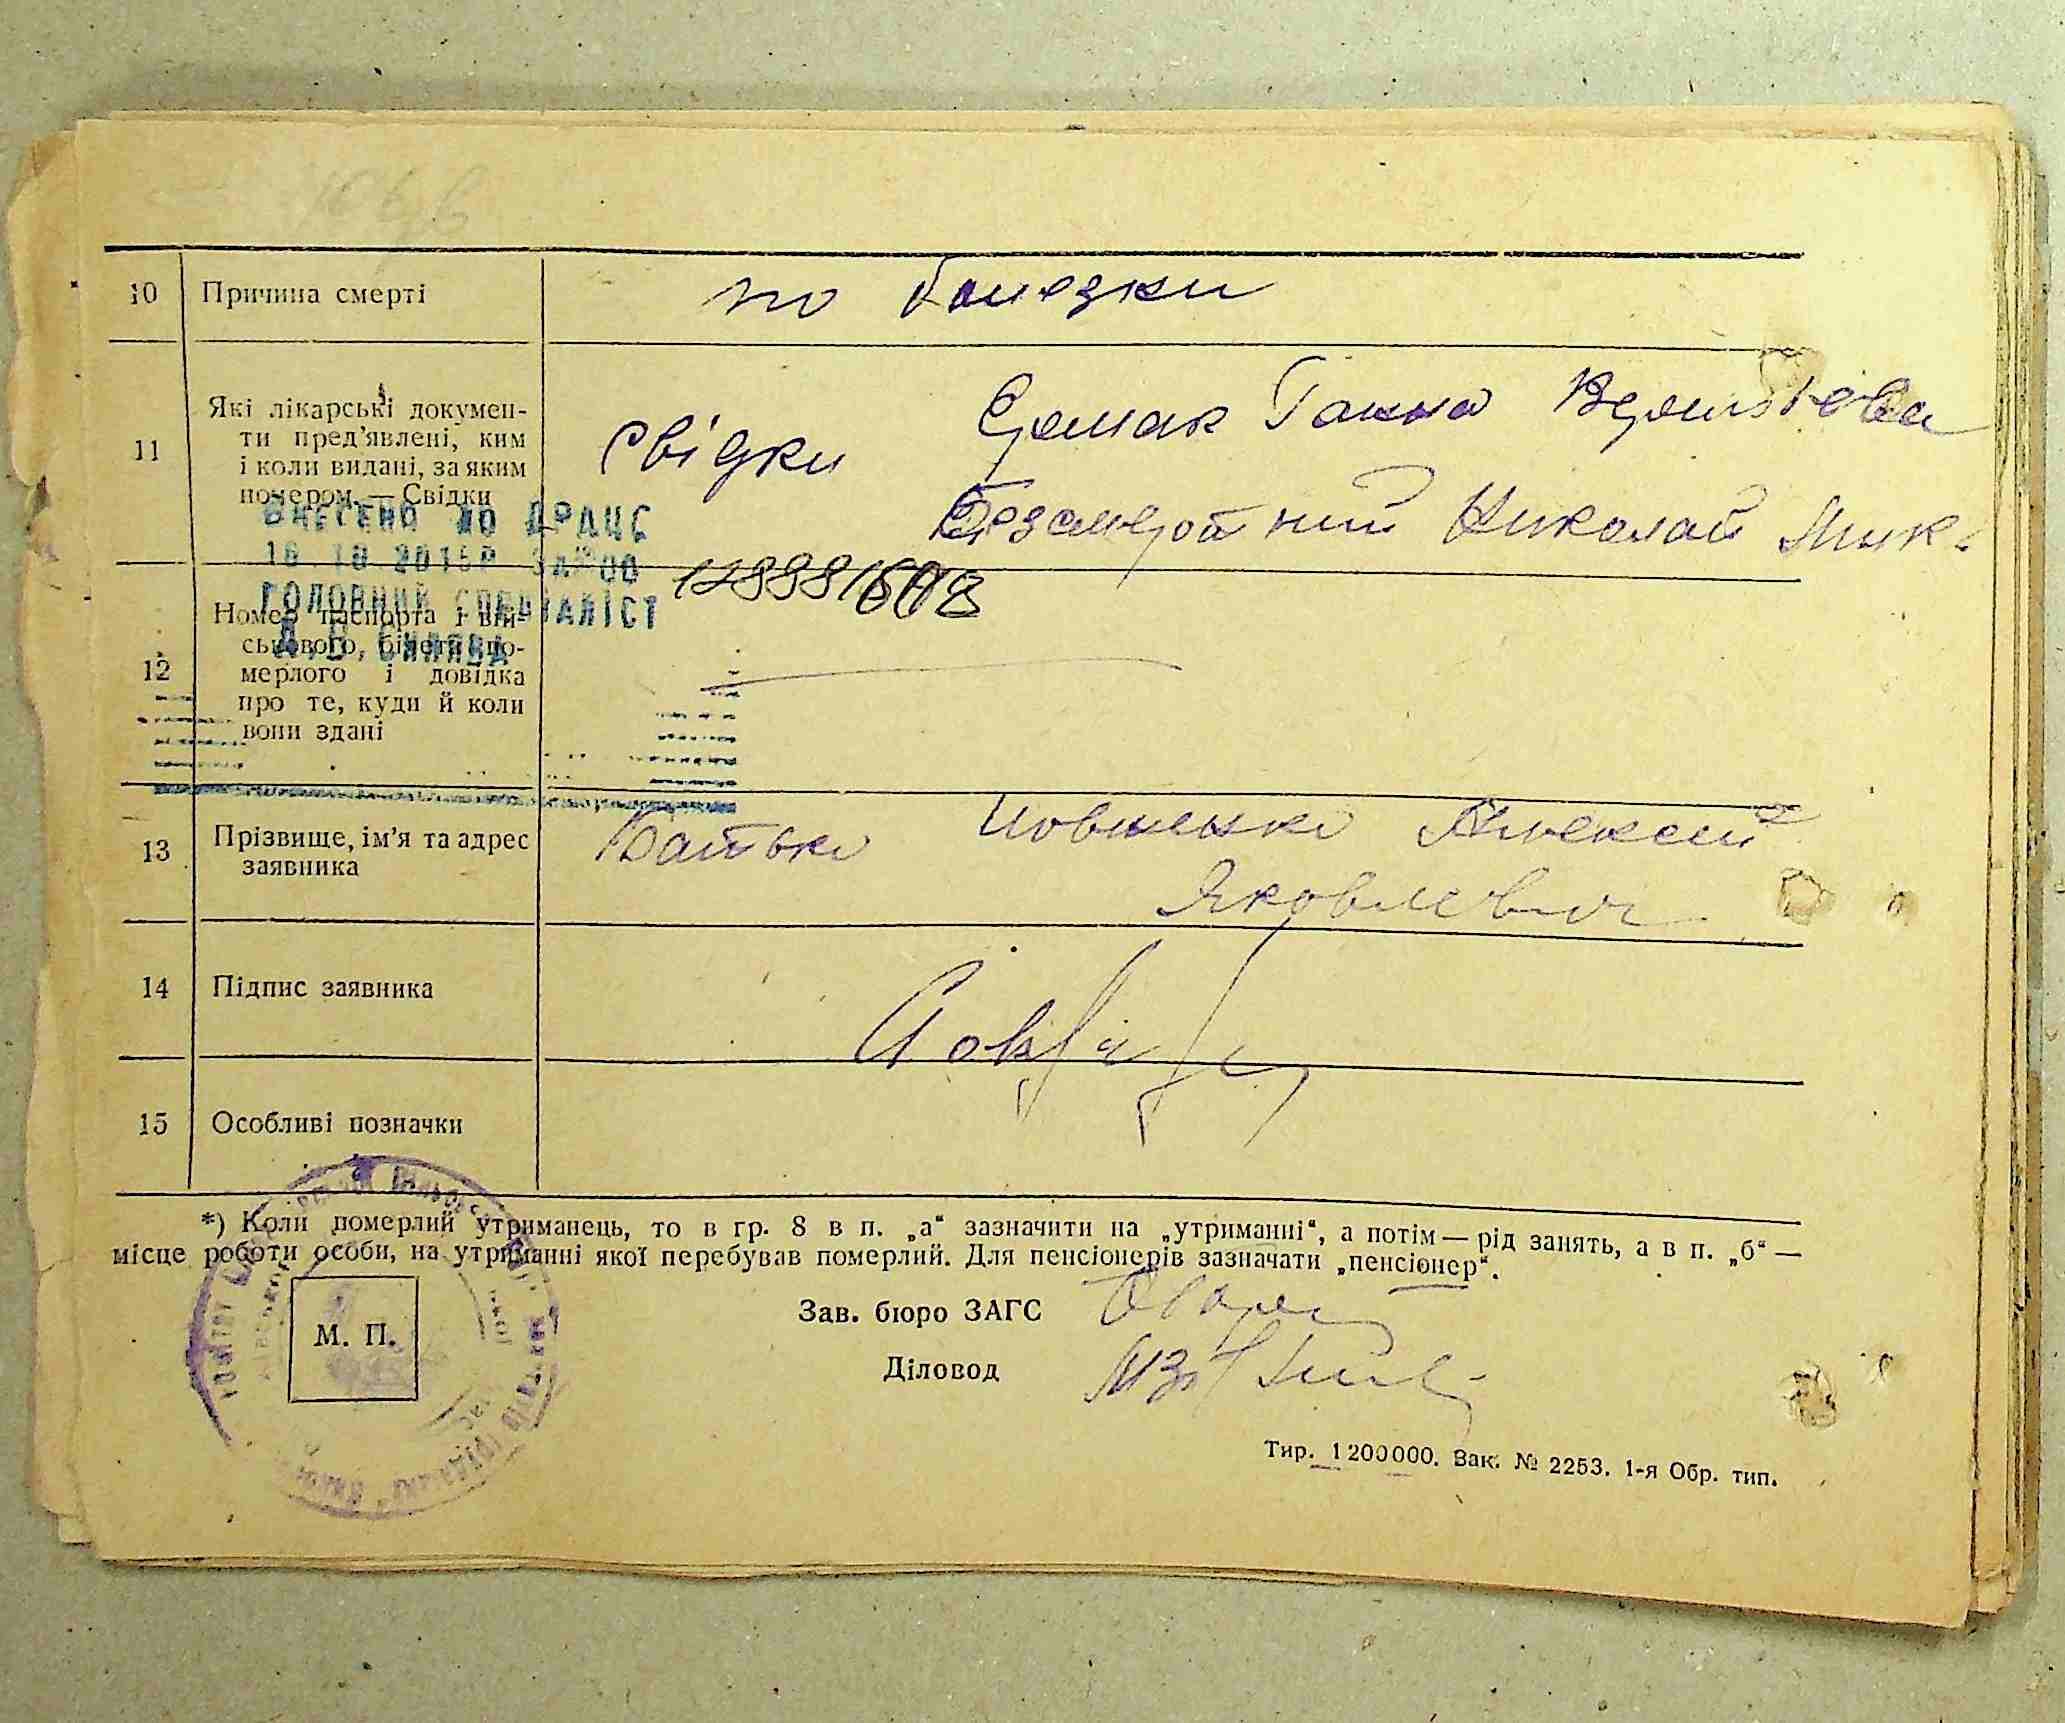 10 Причина смерті по болезни
11 Які лікарські докумен-
ти пред'явлені, ким
і коли видані, за яким
номером. — Свідки
свідки Ермак Ганна
Безсмертний Николай Мик.
ВНЕСЕНО ДО ДРАЦС
ГОЛОВНИЙ СПЕЦІАЛІСТ
12 Номер паспорта і вій-
ськового, білета по-
мерлого і довідка
про те, куди й коли
вони здані
13 Прізвище, ім'я та адрес
заявника
Батько Алексей
Яковлевич
14 Підпис заявника
15 Особливі позначки
*) Коли померлий утриманець, то в гр. 8 в п. „а“ зазначити на „утриманні“, а потім — рід занять, а в п. „б“ —
місце роботи особи, на утриманні якої перебував померлий. Для пенсіонерів зазначати „пенсіонер“.
Зав. бюро ЗАГС
М. П.
Діловод
Тир. 1200000. Зак. № 2253. 1-я Обр. тип.